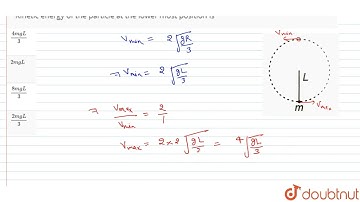 kinetic energy of the particle at the lower most position is
4mgL/3
2mgL
8mgL/3
2mgL/3
Vmin = 2 √(gR/3)
→ Vmin = 2 √(gL/3)
→ Vmax/Vmin = 2/1
Vmax = 2×2 √(gL/3) = 4 √(gL/3)
Vmin
L
m
Vmax
doubtnut